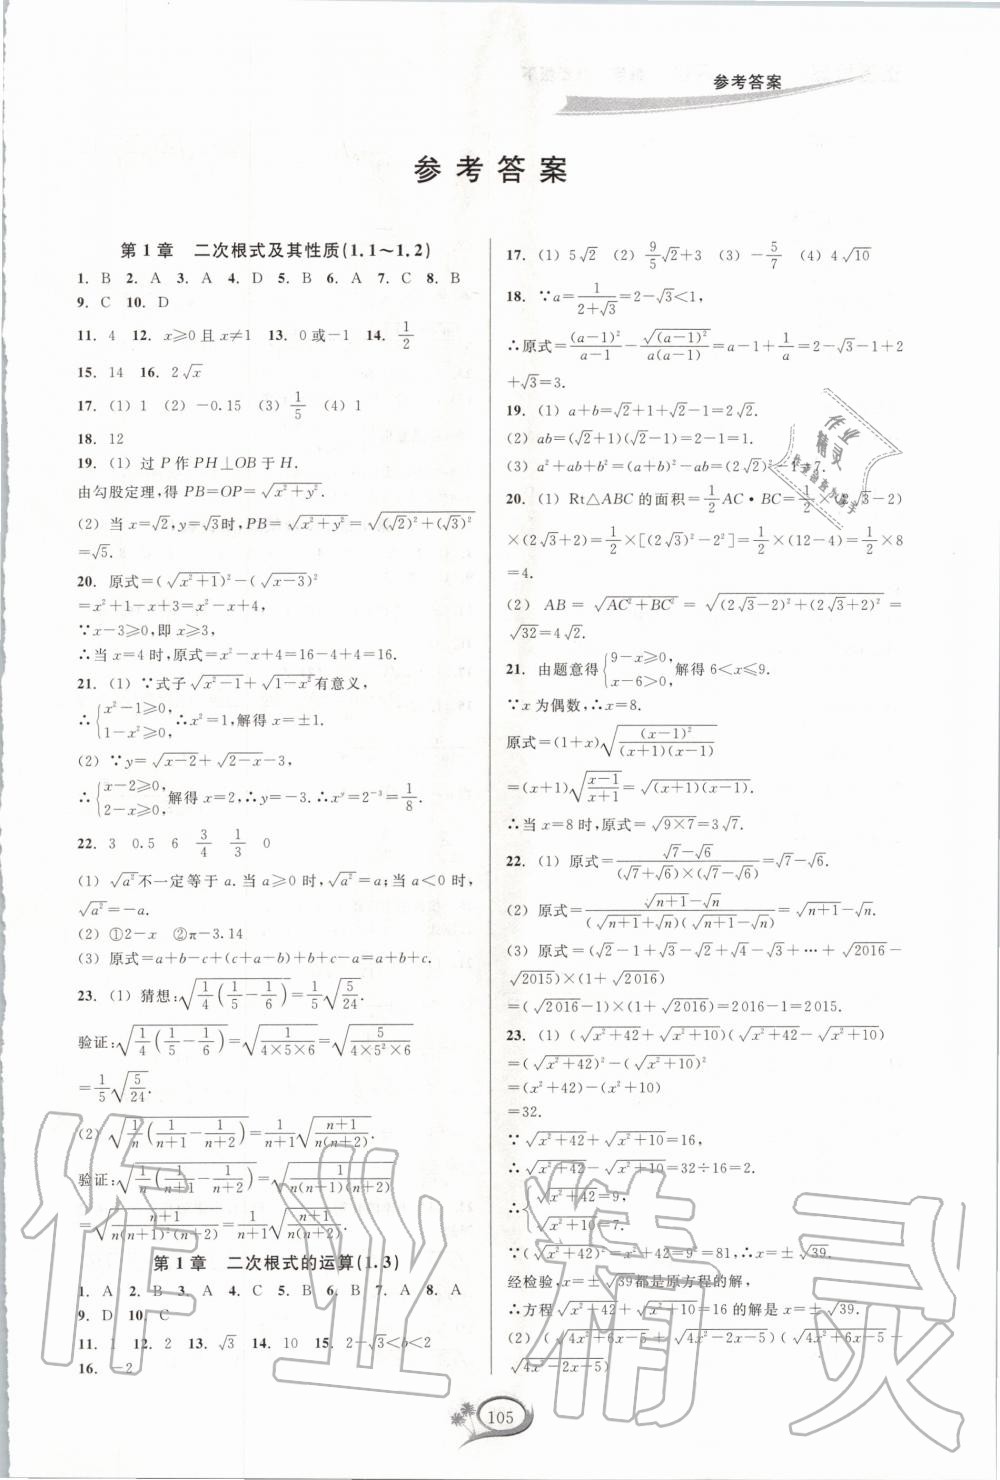 参考答案
参考答案
第1章 二次根式及其性质(1.1～1.2)
1. B 2. A 3. A 4. D 5. B 6. A 7. C 8. B
9. C 10. D
11. 4 12. x≥0且x≠1 13. 0或-1 14. 1/2
15. 14 16. 2√x
17. (1) 1 (2) -0.15 (3) 1/5 (4) 1
18. 12
19. (1) 过P作PH⊥OB于H.
由勾股定理,得PB=OP=√(x²+y²).
(2) 当x=√2,y=√3时,PB=√(x²+y²)=√((√2)²+(√3)²)
=√5.
20. 原式=(√(x²+1))²-(√(x-3))²
=x²+1-x+3=x²-x+4,
∵x-3≥0,即x≥3,
∴当x=4时,原式=x²-x+4=16-4+4=16.
21. (1) ∵式子√(x²-1)+√(1-x²)有意义,
∴{x²-1≥0, 1-x²≥0, ∴x²=1,解得x=±1.
(2) ∵y=√(x-2)+√(2-x)-3,
∴{x-2≥0, 2-x≥0, 解得x=2,∴y=-3.∴x^y=2^(-3)=1/8.
22. 3 0.5 6 3/4 1/3 0
(1) √(a²)不一定等于a.当a≥0时,√(a²)=a;当a<0时,
√(a²)=-a.
(2) ①2-x ②π-3.14
(3) 原式=a+b-c+(c+a-b)+b+c-a=a+b+c.
23. (1) 猜想:√(1/4(1/5-1/6))=1/5√(5/24).
验证:√(1/4(1/5-1/6))=√(1/(4×5×6))=√(5/(4×5²×6))
=1/5√(5/24).
(2) √(1/n(1/(n+1)-1/(n+2)))=1/(n+1)√((n+1)/(n(n+2))).
验证:√(1/n(1/(n+1)-1/(n+2)))=√(1/(n(n+1)(n+2)))
=√((n+1)/(n(n+1)²(n+2)))=1/(n+1)√((n+1)/(n(n+2))).
第1章 二次根式的运算(1.3)
1. A 2. B 3. A 4. C 5. B 6. B 7. A 8. A
9. D 10. C
11. 1 12. 2 13. √3 14. 10 15. 2-√3<b<2
16. -2
17. (1) 5√2 (2) 9/5√2+3 (3) -5/7 (4) 4√10
18. ∵a=1/(2+√3)=2-√3<1,
∴原式=(a-1)²/(a-1)-√((a-1)²)/(a(a-1))=a-1+1/a=2-√3-1+2
+√3=3.
19. (1) a+b=√2+1+√2-1=2√2.
(2) ab=(√2+1)(√2-1)=2-1=1.
(3) a²+ab+b²=(a+b)²-ab=(2√2)²-1=7.
20. (1) Rt△ABC的面积=1/2AC·BC=1/2×(2√3-2)
×(2√3+2)=1/2×[(2√3)²-2²]=1/2×(12-4)=1/2×8
=4.
(2) AB=√(AC²+BC²)=√((2√3-2)²+(2√3+2)²)=
√32=4√2.
21. 由题意得{9-x≥0, x-6>0, 解得6<x≤9.
∵x为偶数,∴x=8.
原式=(1+x)√((x-1)²/((x+1)(x-1)))
=(x+1)√((x-1)/(x+1))=√((x+1)(x-1)).
∴当x=8时,原式=√(9×7)=3√7.
22. (1) 原式=(√7-√6)/((√7+√6)×(√7-√6))=√7-√6.
(2) 原式=(√(n+1)-√n)/((√(n+1)+√n)(√(n+1)-√n))=√(n+1)-√n.
(3) 原式=(√2-1+√3-√2+√4-√3+…+√2016-
√2015)×(1+√2016)
=(√2016-1)×(1+√2016)=2016-1=2015.
23. (1) (√(x²+42)+√(x²+10))(√(x²+42)-√(x²+10))
=(√(x²+42))²-(√(x²+10))²
=(x²+42)-(x²+10)
=32.
∵√(x²+42)+√(x²+10)=16,
∴√(x²+42)-√(x²+10)=32÷16=2.
∴{√(x²+42)=9, √(x²+10)=7.
∵(√(x²+42))²=x²+42=9²=81,∴x=±√39.
经检验,x=±√39都是原方程的解,
∴方程√(x²+42)+√(x²+10)=16的解是x=±√39.
(2) (√(4x²+6x-5)+√(4x²-2x-5))(√(4x²+6x-5)-
√(4x²-2x-5))
105
作业精灵
作业
精灵